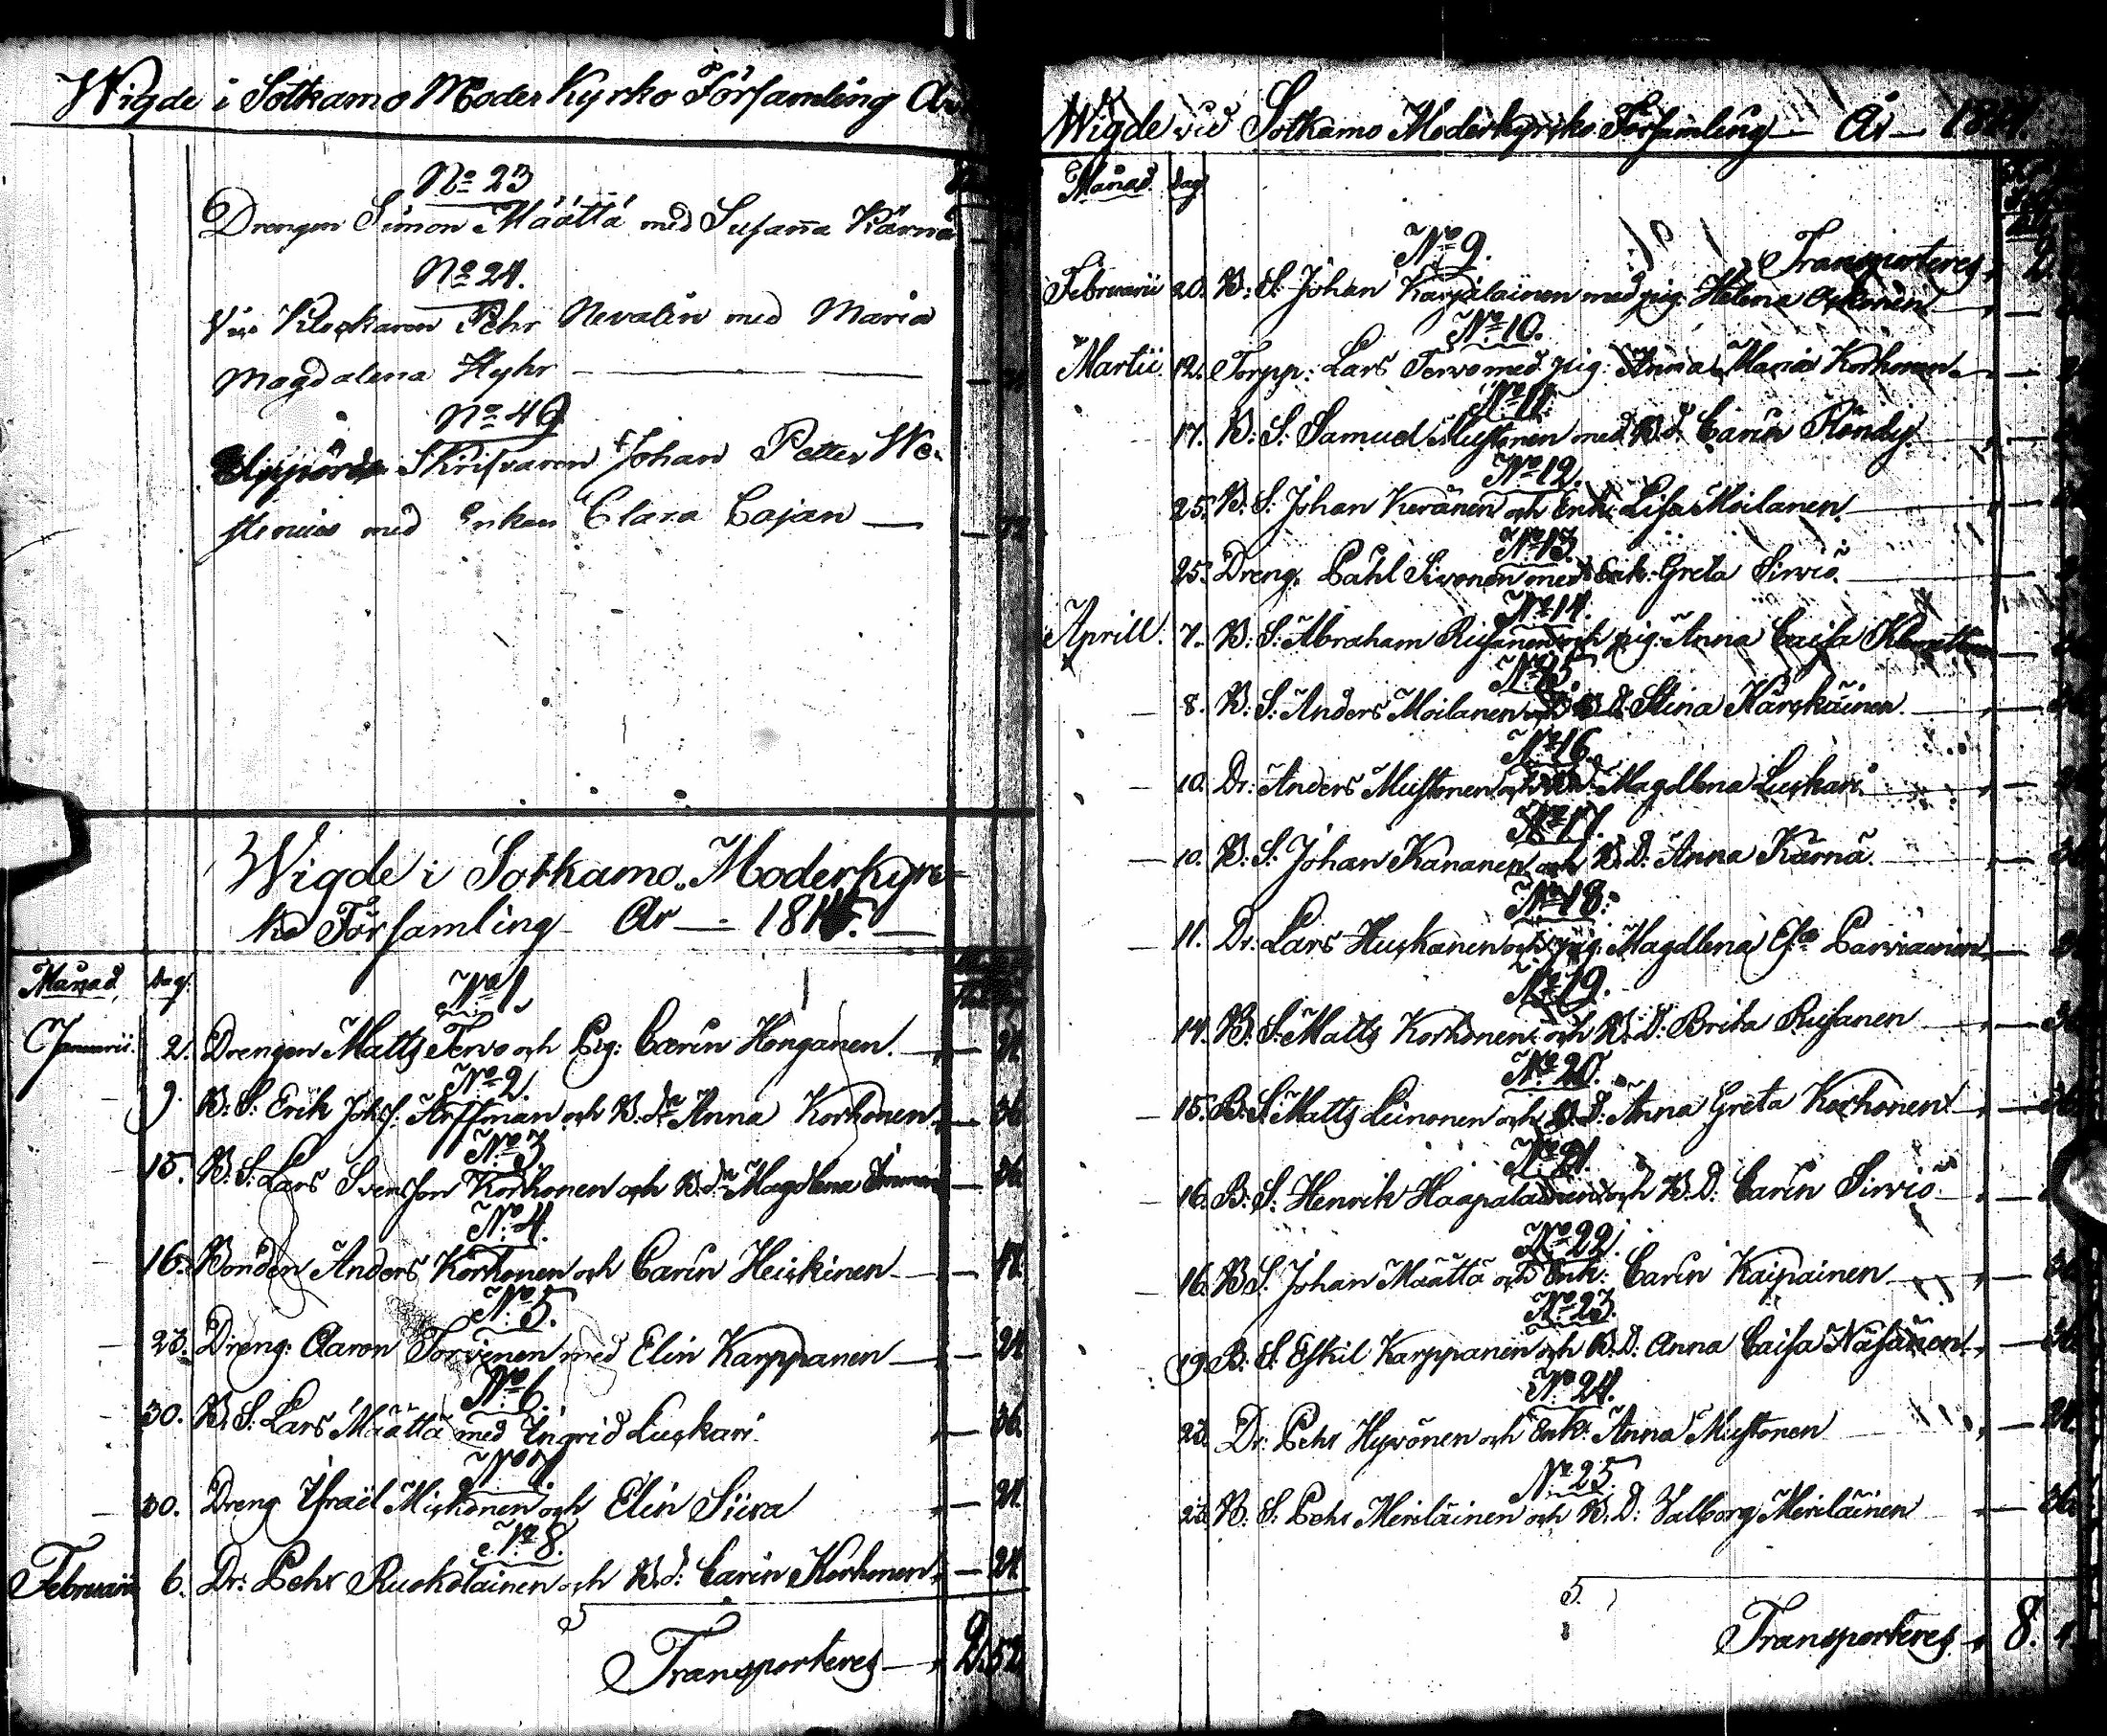 Wigde i Sotkamo Moder Kyrko Församling
No 23
Drengen Simon Määttä med Susanna Kärnä
No 24.
Klockaren Pehr Nevalin med Maria
Magdalena Hyhr
No 49
Skrifvaren Johan Petter We-
stenius med Enkan Clara Cajan
Wigde i Sotkamo Moderkyr-
ko Församling År 181
Månad dag.
No 1.
Januarii. 2. Drengen Matts Tervo och Pig: Carin Honganen. 24.
No 2.
9. B: S: Erik Johss: Arffman och B. dr Anna Korhonen 36
No 3
15. B: S: Lars Svensson Korhonen och B. dr Magdlena 36
No 4.
16. Bonden Anders Korhonen och Carin Heiskinen 48.
No 5.
23. Dreng: Aaron Torvinen med Elin Karppanen 24
No 6.
30. B. S: Lars Määttä med Ingrid Luskari 36.
No 7
30. Dreng Israël Miskonen och Elin Siira 24.
No 8.
Februarii 6. Dr: Pehr Ruokolainen och B. d: Carin Korhonen 24
Transporteres 2.52
Wigde vid Sotkamo Moderkyrko Församling År
Månad dag
Transporteres 2.
No 9.
Februarii 20. B: S: Johan Karjalainen med pig: Helena
No 10.
Martii 12. Torpp: Lars Tervo med pig: Anna Maria Korhonen
No 11.
17. B: S: Samuel Mustonen med B. d: Carin Röndy.
No 12.
25. B: S: Johan Keränen och Enk: Lisa Moilanen
No 13.
25. Dreng: Påhl Sivonen med Enk: Greta Sirviö.
No 14.
Aprill. 7. B: S: Abraham Rusanen och pig: Anna Caisa
No 15.
8. B: S: Anders Moilanen och B. D. Stina Kärskäinen
No 16.
10. Dr: Anders Mustonen och B. d: Magdlena Luskari
No 17.
10. B: S: Johan Kananen och B. D: Anna Kärnä.
No 18.
11. Dr: Lars Huskonen och pig: Magdlena
No 19.
14. B: S: Matts Korhonen och B. D: Brita Rusanen
No 20.
15. B: S: Matts Leinonen och B. D: Anna Greta Korhonen
No 21.
16. B: S: Henrik Haapalainen och B. D: Carin Sirviö
No 22.
16. B. S: Johan Määttä och Enk: Carin Kaipainen
No 23.
19. B: S: Eskil Karppanen och B. D: Anna Caisa Näsänen
No 24.
23. Dr: Pehr Hyvönen och Enk: Anna Mustonen 24.
No 25.
23. B: S: Pehr Meriläinen och B. D: Valborg Meriläinen 36.
Transporteres 8.